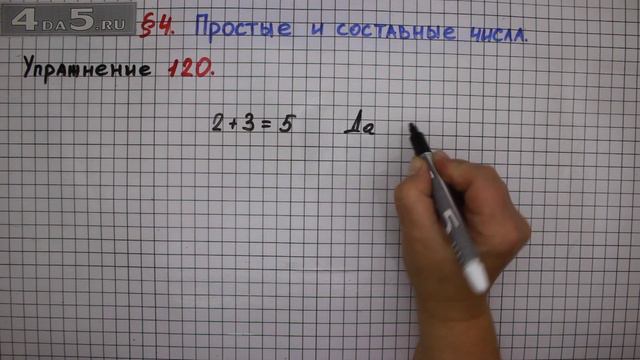 4DA5.RU § 4. Простые и составные числа.
Упражнение 120.
2 + 3 = 5 Да